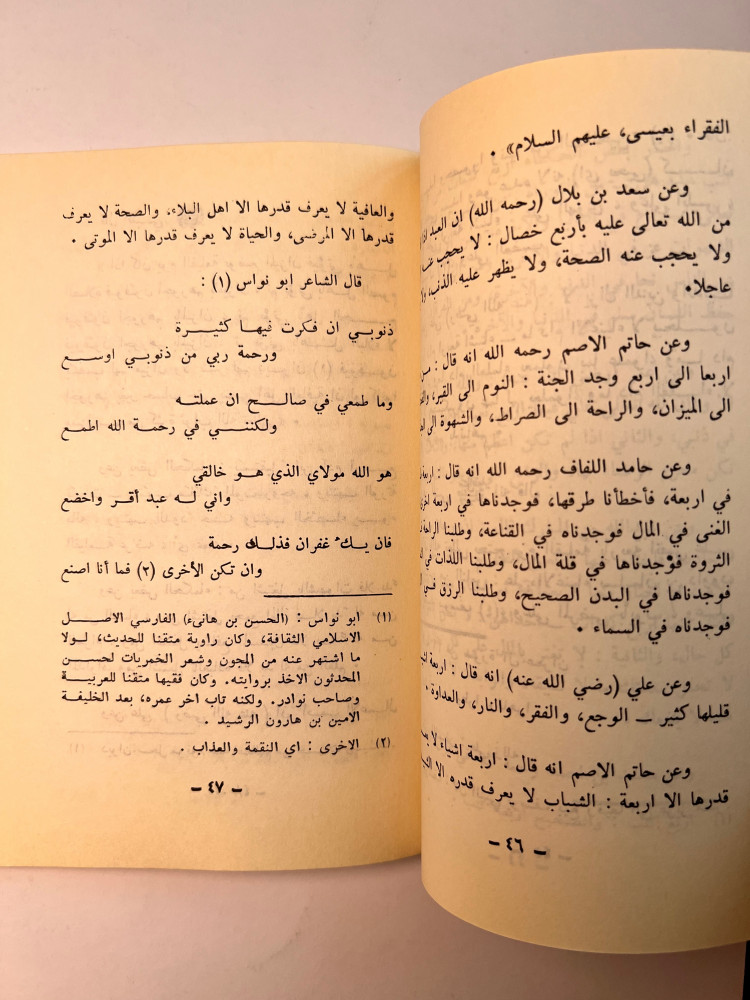 الفقراء بعيسى، عليهم السلام» .
وعن سعد بن بلال (رحمه الله) ان العبد
من الله تعالى عليه بأربع خصال : لا يحجب عنه
ولا يحجب عنه الصحة، ولا يظهر عليه الذنب،
عاجلا»
وعن حاتم الاصم رحمه الله انه قال :
اربعا الى اربع وجد الجنة : النوم الى القبر،
الى الميزان، والراحة الى الصراط، والشهوة الى
وعن حامد اللفاف رحمه الله انه قال : اربعة
في اربعة، فأخطأنا طرقها، فوجدناها في اربعة
الغنى في المال فوجدناه في القناعة، وطلبنا الراحة
الثروة فوجدناها في قلة المال، وطلبنا اللذات في
فوجدناها في البدن الصحيح، وطلبنا الرزق في
فوجدناه في السماء .
وعن علي (رضي الله عنه) انه قال : اربعة
قليلها كثير ــ الوجع، والفقر، والنار، والعداوة .
وعن حاتم الاصم انه قال : اربعة اشياء لا
قدرها الا اربعة : الشباب لا يعرف قدره الا
ــ ٤٦ ــ
والعافية لا يعرف قدرها الا اهل البلاء، والصحة لا يعرف
قدرها الا المرضى، والحياة لا يعرف قدرها الا الموتى .
قال الشاعر ابو نواس (١) :
ذنوبي ان فكرت فيها كثيرة
ورحمة ربي من ذنوبي اوسع
وما طمعي في صالح ان عملته
ولكنني في رحمة الله اطمع
هو الله مولاي الذي هو خالقي
واني له عبد أقر واخضع
فان يك غفران فذلك رحمة
وان تكن الأخرى (٢) فما أنا اصنع
(١) ابو نواس : (الحسن بن هانىء) الفارسي الاصل
الاسلامي الثقافة، وكان راوية متقنا للحديث، لولا
ما اشتهر عنه من المجون وشعر الخمريات لحسن
المحدثون الاخذ بروايته. وكان فقيها متقنا للعربية
وصاحب نوادر. ولكنه تاب اخر عمره، بعد الخليفة
الامين بن هارون الرشيد .
(٢) الاخرى : اي النقمة والعذاب .
ــ ٤٧ ــ